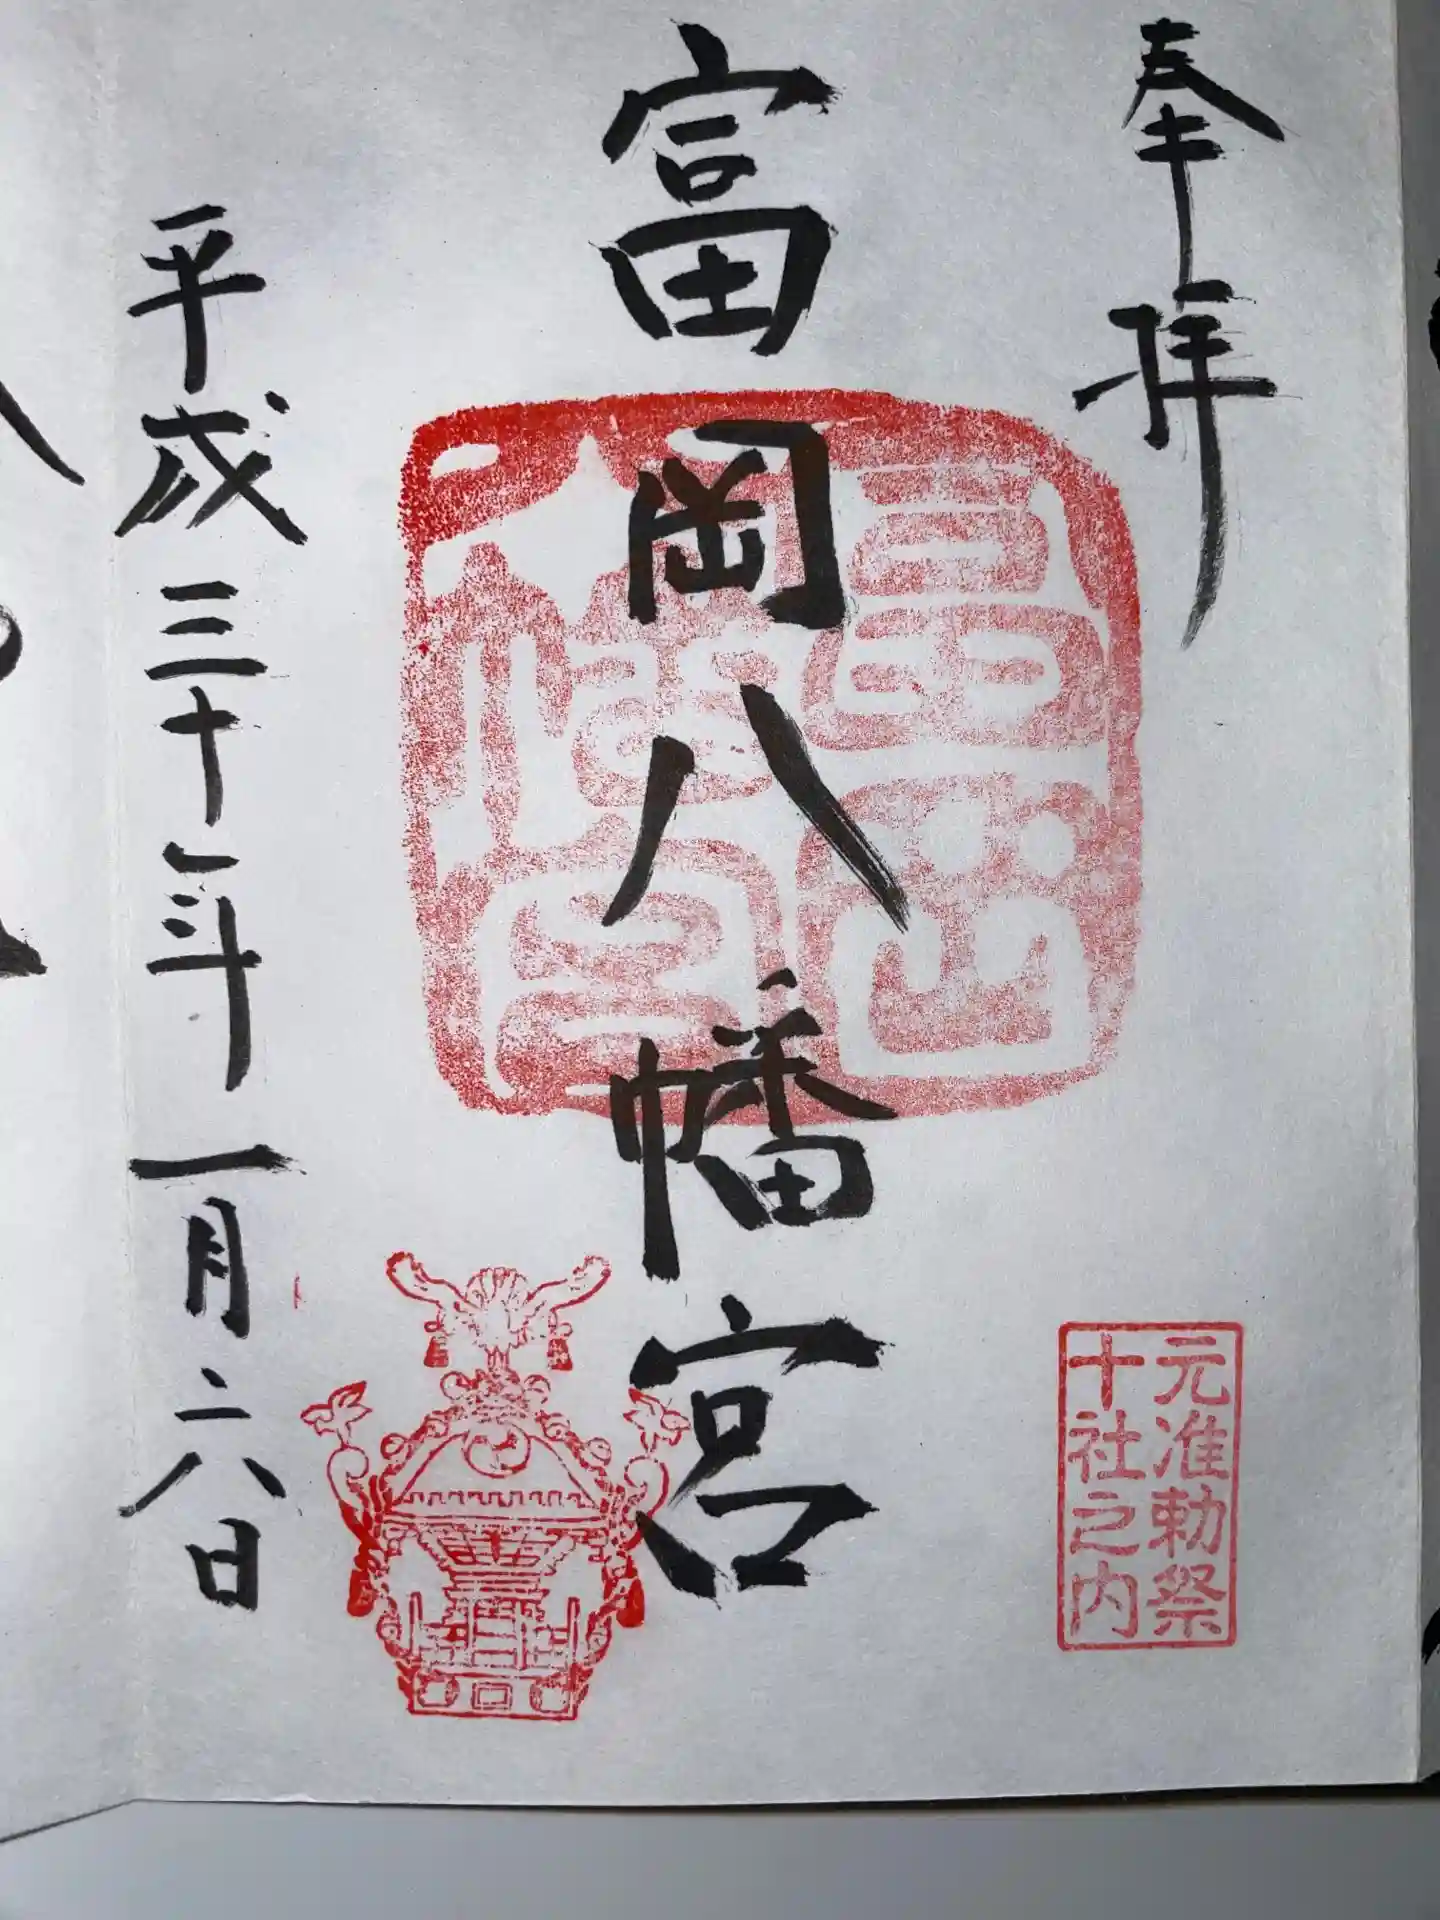 奉拝
元准勅祭
十社之内
富岡八幡宮
平成三十年一月二八日